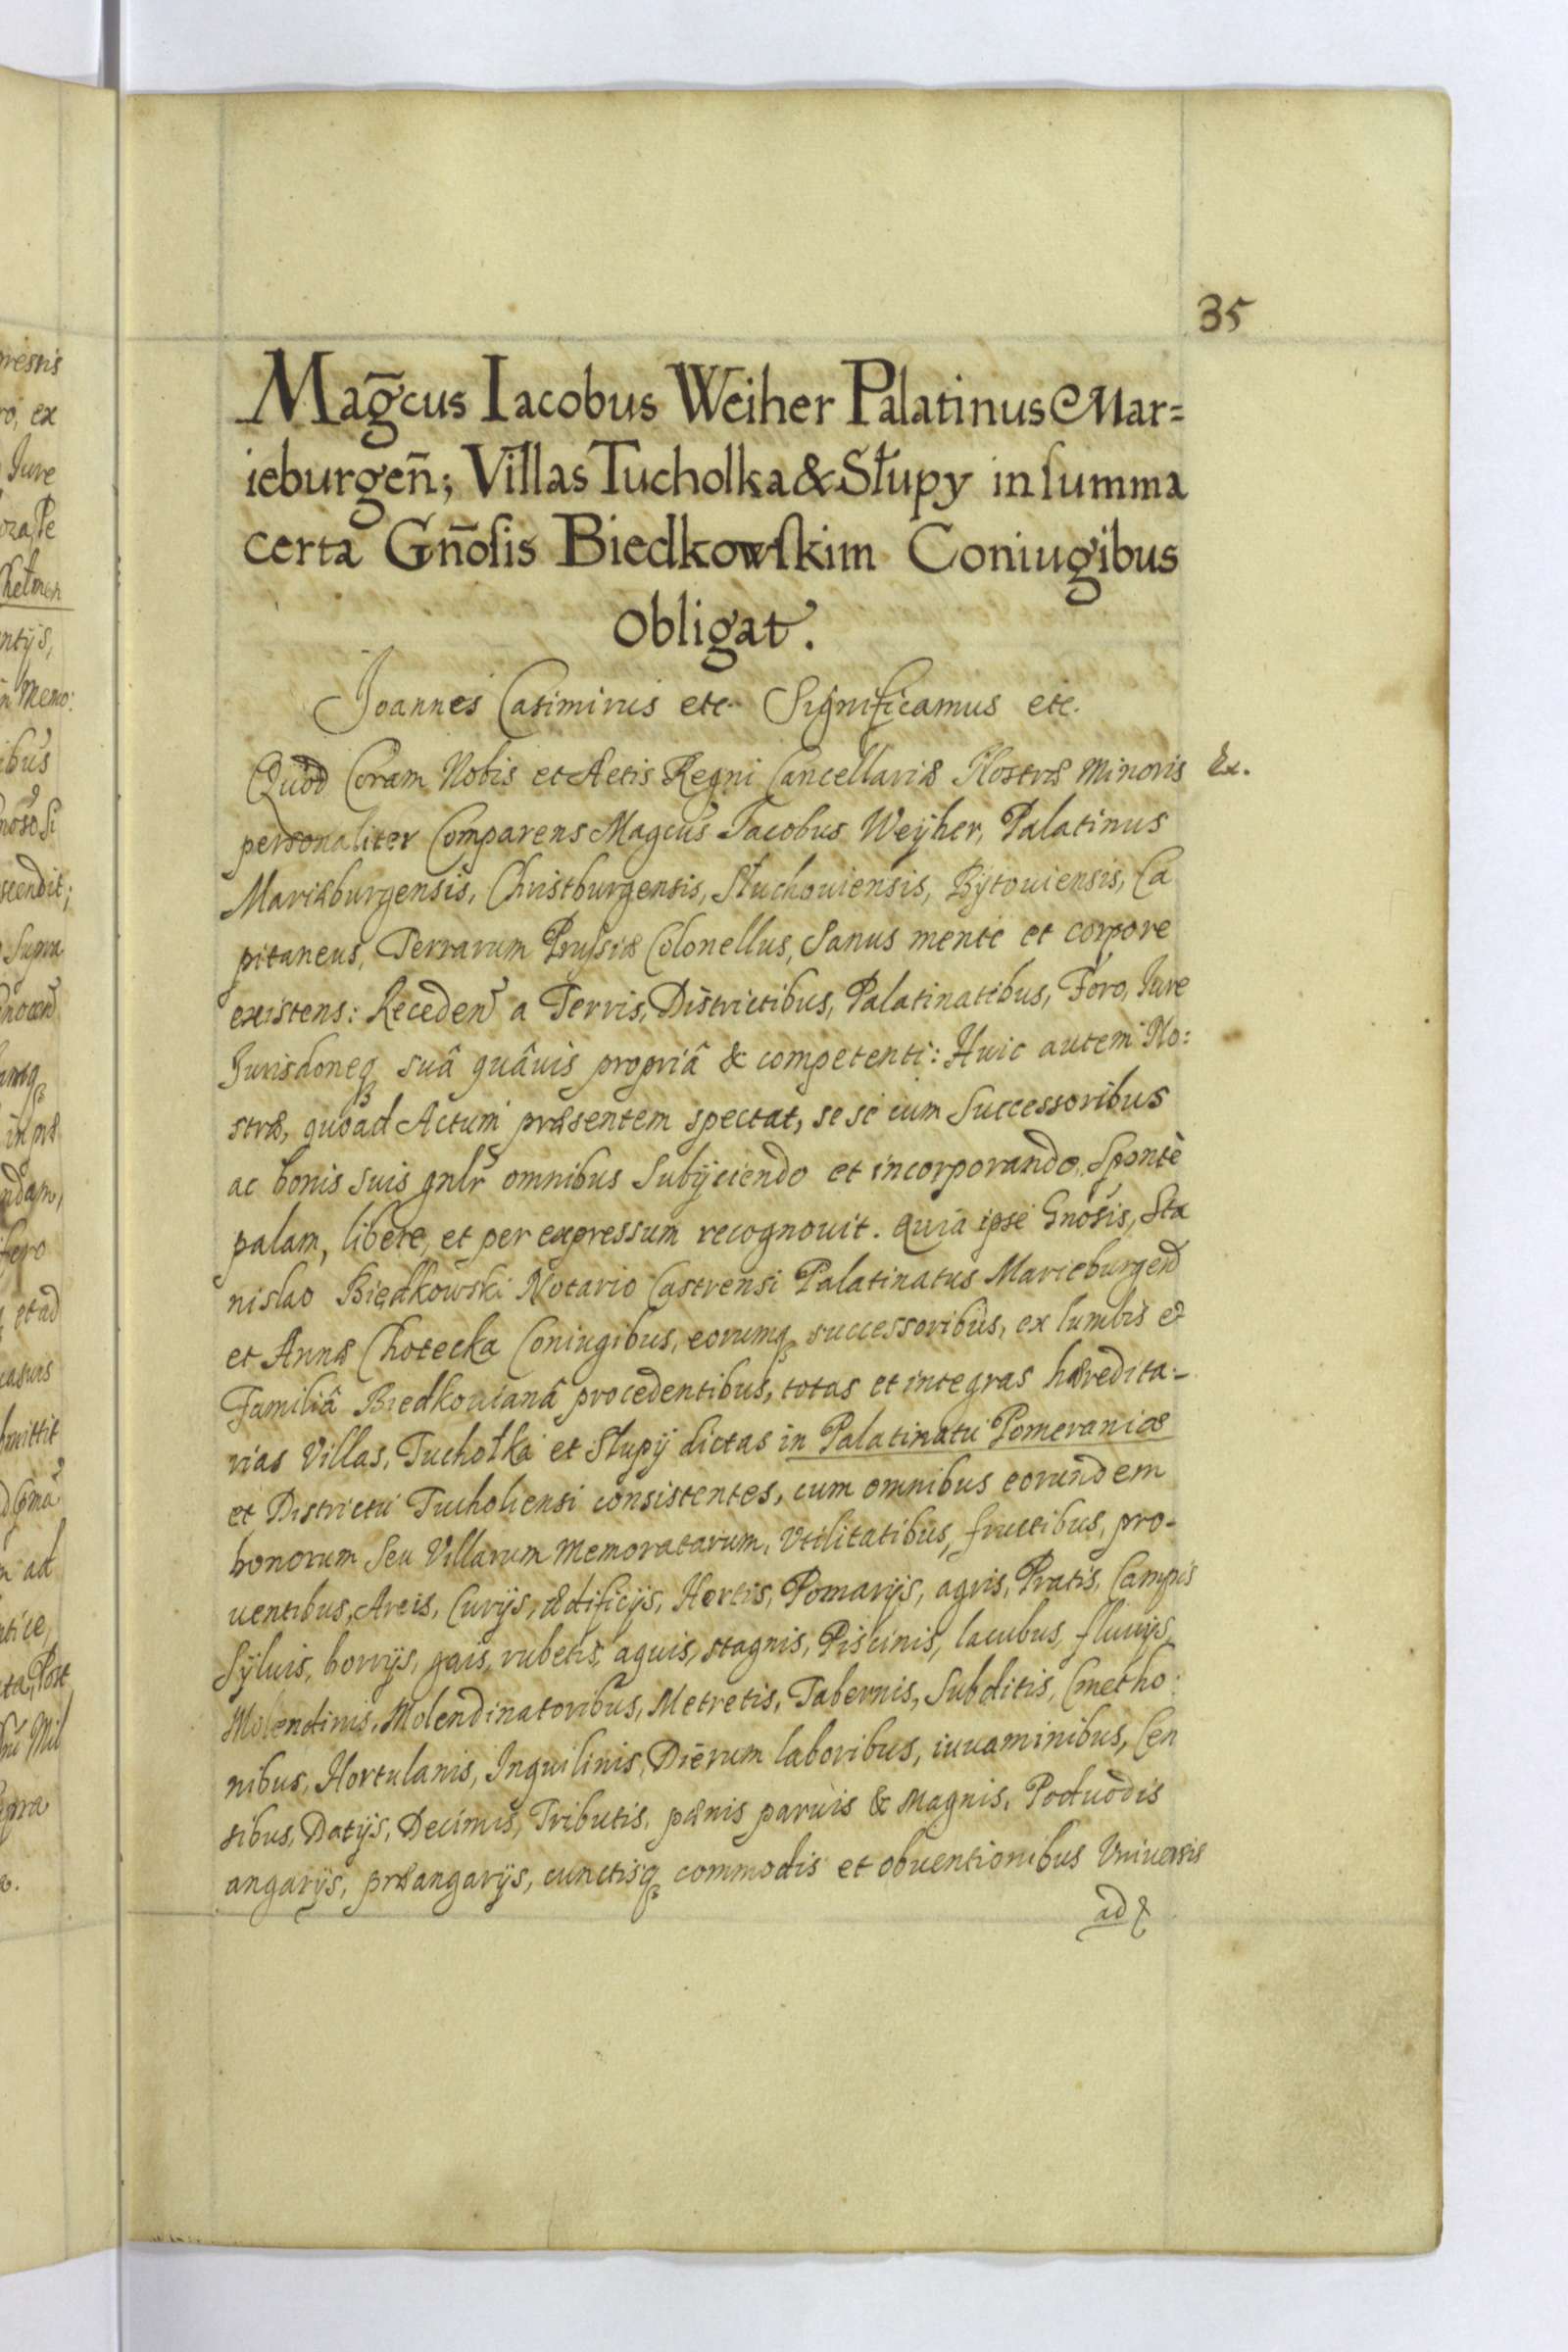 35
Mag̃cus Iacobus Weiher Palatinus Mar=
ieburgen̄; Villas Tucholka & Słupy in summa
certa Gn̄osis Biedkowskim Coniugibus
obligat.
Joannes Casimirus etc. Significamus etc.
Quod Coram Nobis et Actis Regni Cancellariæ Nostræ Minoris Ex.
personaliter Comparens Magcus Jacobus Weÿher, Palatinus
Mariæburgensis, Christburgensis, Słuchouiensis, Bÿtouiensis, Ca
pitaneus, Terrarum Prussiæ Colonellus, Sanus mente et corpore
existens: Receden̄ a Terris, Districtibus, Palatinatibus, Foro, Iure
Iurisdoneq́ suâ quâuis propriâ & competenti: Huic autem No:
stræ, quoad Actum præsentem spectat, sese cum Successoribus
ac bonis suis gnlr̄ omnibus Subÿciendo et incorporando. Spontè
palam, libere, et per expressum recognouit. Quia ipse Gnosis, Sta
nislao Biedkowski Notario Castrensi Palatinatus Marieburgen̄
et Annæ Chotecka Coniugibus, eorumq́ successoribus, ex lumbis et
Familiâ Biedkouianâ procedentibus, totas et integras hæredita:
rias Villas, Tuchołka et Słupÿ dictas in Palatinatu Pomeraniæ
et Districtu Tucholiensi consistentes, cum omnibus eorundem
bonorum Seu Villarum Memoratarum, Vtilitatibus, fructibus, pro-
uentibus, Areis, Curijs, ædificijs, Hortis, Pomarijs, agris, Pratis, Campis
Sÿluis, borrijs, gais, rubetis, aquis, stagnis, Piscinis, lacubus, fluuijs,
Molendinis, Molendinatoribus, Metretis, Tabernis, Subditis, Cmetho:
nibus, Hortulanis, Inquilinis, Diērum laboribus, iuuaminibus, Cen
sibus, Datijs, Decimis, Tributis, pænis paruis & Magnis, Poduodis
angarijs, præangarijs, cunctisq́ commodis et obuentionibus Vniuersis
ad